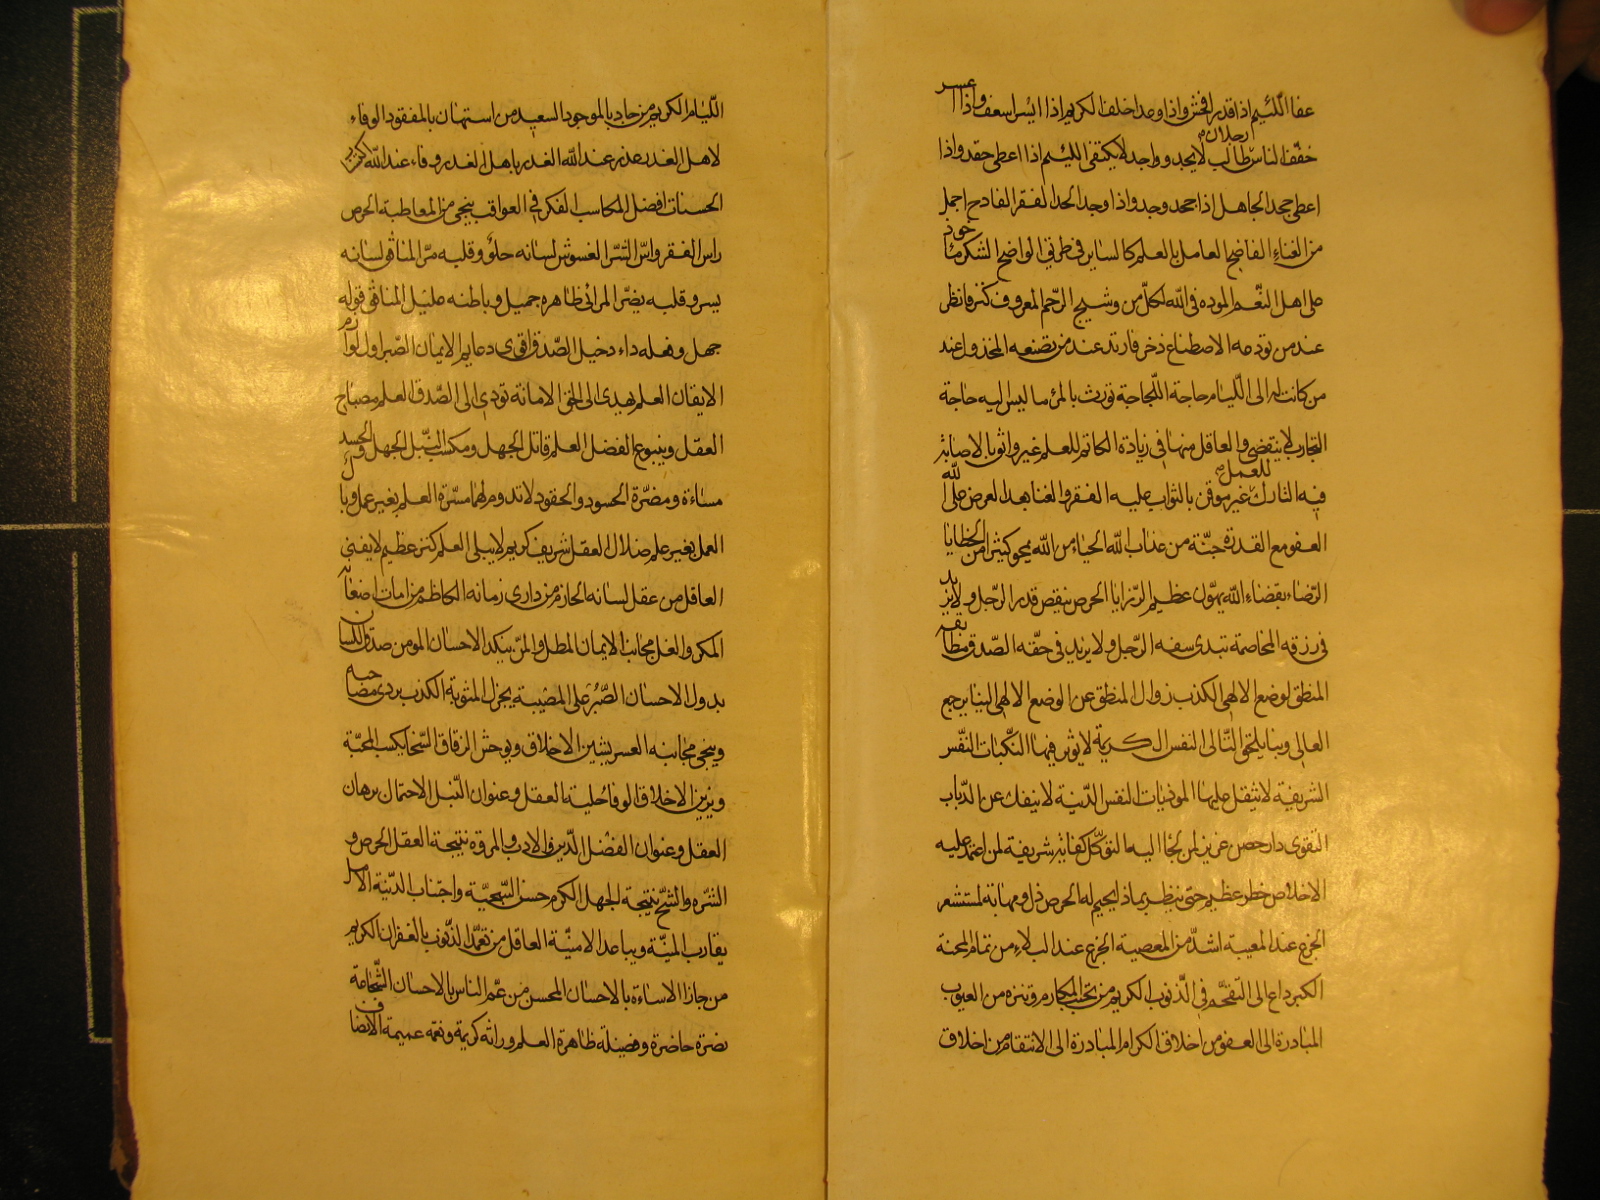 عفا اللئيم اذا قدر افحش واذا وعد اخلف الكريم اذا ايسر اسعف واذا اعسر
خفف الناس رجلان طالب لا يجد وواجد لا يكتفى اللئيم اذا اعطى حقد واذا
اعطى جحد الجاهل اذا جحد وجد واذا وجد الحد الفقر الفادح اجمل
من الغناء الفاضح العامل بالعلم كالساير فى طريق الواضح الشكر ماخوذ
على اهل النعم الموده فى الله اكد من وشيج الرحم المعروف كنز فانظر
عند من تودعه الاصطناع ذخر فارتد عند من تضعه المخذول عند
من كانت له الى اللئام حاجة اللجاجة تورث بالمرء ما ليس اليه حاجة
التجارب لا ينقضى والعاقل منها فى زيادة الكاتم للعلم غير واثق بالاصابة
فيه التارك للعمل غير موقن بالثواب عليه الفقر والغنا بعد العرض على الله
العفو مع القدرة جنة من عذاب الله الحياء من الله يمحو كثيرا من الخطايا
الرضاء بقضاء الله يهون عظيم الرزايا الحرص ينقص قدر الرجل ولا يزيد
فى رزقه المخاصمة تبدى سفه الرجل ولا يزيد فى حقه الصدق مطابقه
المنطق لوضع الالهى الكذب زوال المنطق عن الوضع الالهى البنا يرجع
العالى وبنا يلحق التالى النفس الكريمة لا يوثر فيها النكبات النفس
الشريفة لا تثقل عليها الموذيات النفس الدنية لا ينفك عن الدباب
التقوى دار حصن عزيز لمن لجا اليه التوكل كفاية شريفة لمن اعتمد عليه
الاخلاص خطر عظيم حتى ينظر بماذا يختم له الحرص ذل ومهانة لمستشعر
الجزع عند المصيبة اشد من المعصية الجزع عند البلاء من تمام المحنة
الكبر داع الى التقحم فى الذنوب الكريم من تجنب المكارم وتنزه من العيوب
المبادرة الى العفو من اخلاق الكرام المبادرة الى الانتقام من اخلاق
اللئام الكريم من جاد بالموجود السعيد من استهان بالمفقود الوفاء
لاهل الغدر غدر عند الله الغدر باهل الغدر وفاء عند الله
الحسنات افضل المكاسب الفكر فى العواقب ينجى من المعاطب الحرص
راس الفقر واس الشر الغشوش لسانه حلو وقلبه مر المنافق لسانه
يسر وقلبه يضر المرائى ظاهره جميل وباطنه عليل المنافق قوله
جهل وفعله داء دخيل الصدق اقوى دعايم الايمان الصبر اول لوازم
الايقان العلم يهدى الى الحق الامانة تودى الى الصدق العلم مصباح
العقل وينبوع الفضل العلم قاتل الجهل ومكسب النبل الجهل والحسد
مساءة ومضرة الحسود والحقود لا تدوم لهما مسرة العلم بغير عمل وبال
العمل بغير علم ضلال العقل شريف كريم لا يبلى العلم كنز عظيم لا يفنى
العاقل من عقل لسانه الحازم من دارى زمانه الكاظم من امات اضغانه
المكر والغل مجانب الايمان المطل والمن ينكد الاحسان المومن صدوق اللسان
بدول الاحسان الصبر على المصيبة يجزل المثوبة الكذب يردى مصاحبه
وينجى مجانبه العسر يشين الاخلاق ويوحش الرفاق السخا يكسب المحبة
ويزين الاخلاق الوفا حلية العقل وعنوان النبل الاحتمال برهان
العقل وعنوان الفضل الدين والادب والمروة نتيجة العقل الحرص و
الشره والشح نتيجة الجهل الكرم حسن السجية واجتناب الدنية الامل
يقارب المنية ويباعد الامنية العاقل من تغمد الذنوب بالغفران الكريم
من جازا الاساءة بالاحسان المحسن من عم الناس بالاحسان الشجاعة
نصرة حاضرة وفضيلة ظاهرة العلم وراثه كريمة ونعمه عميمة الانصاف